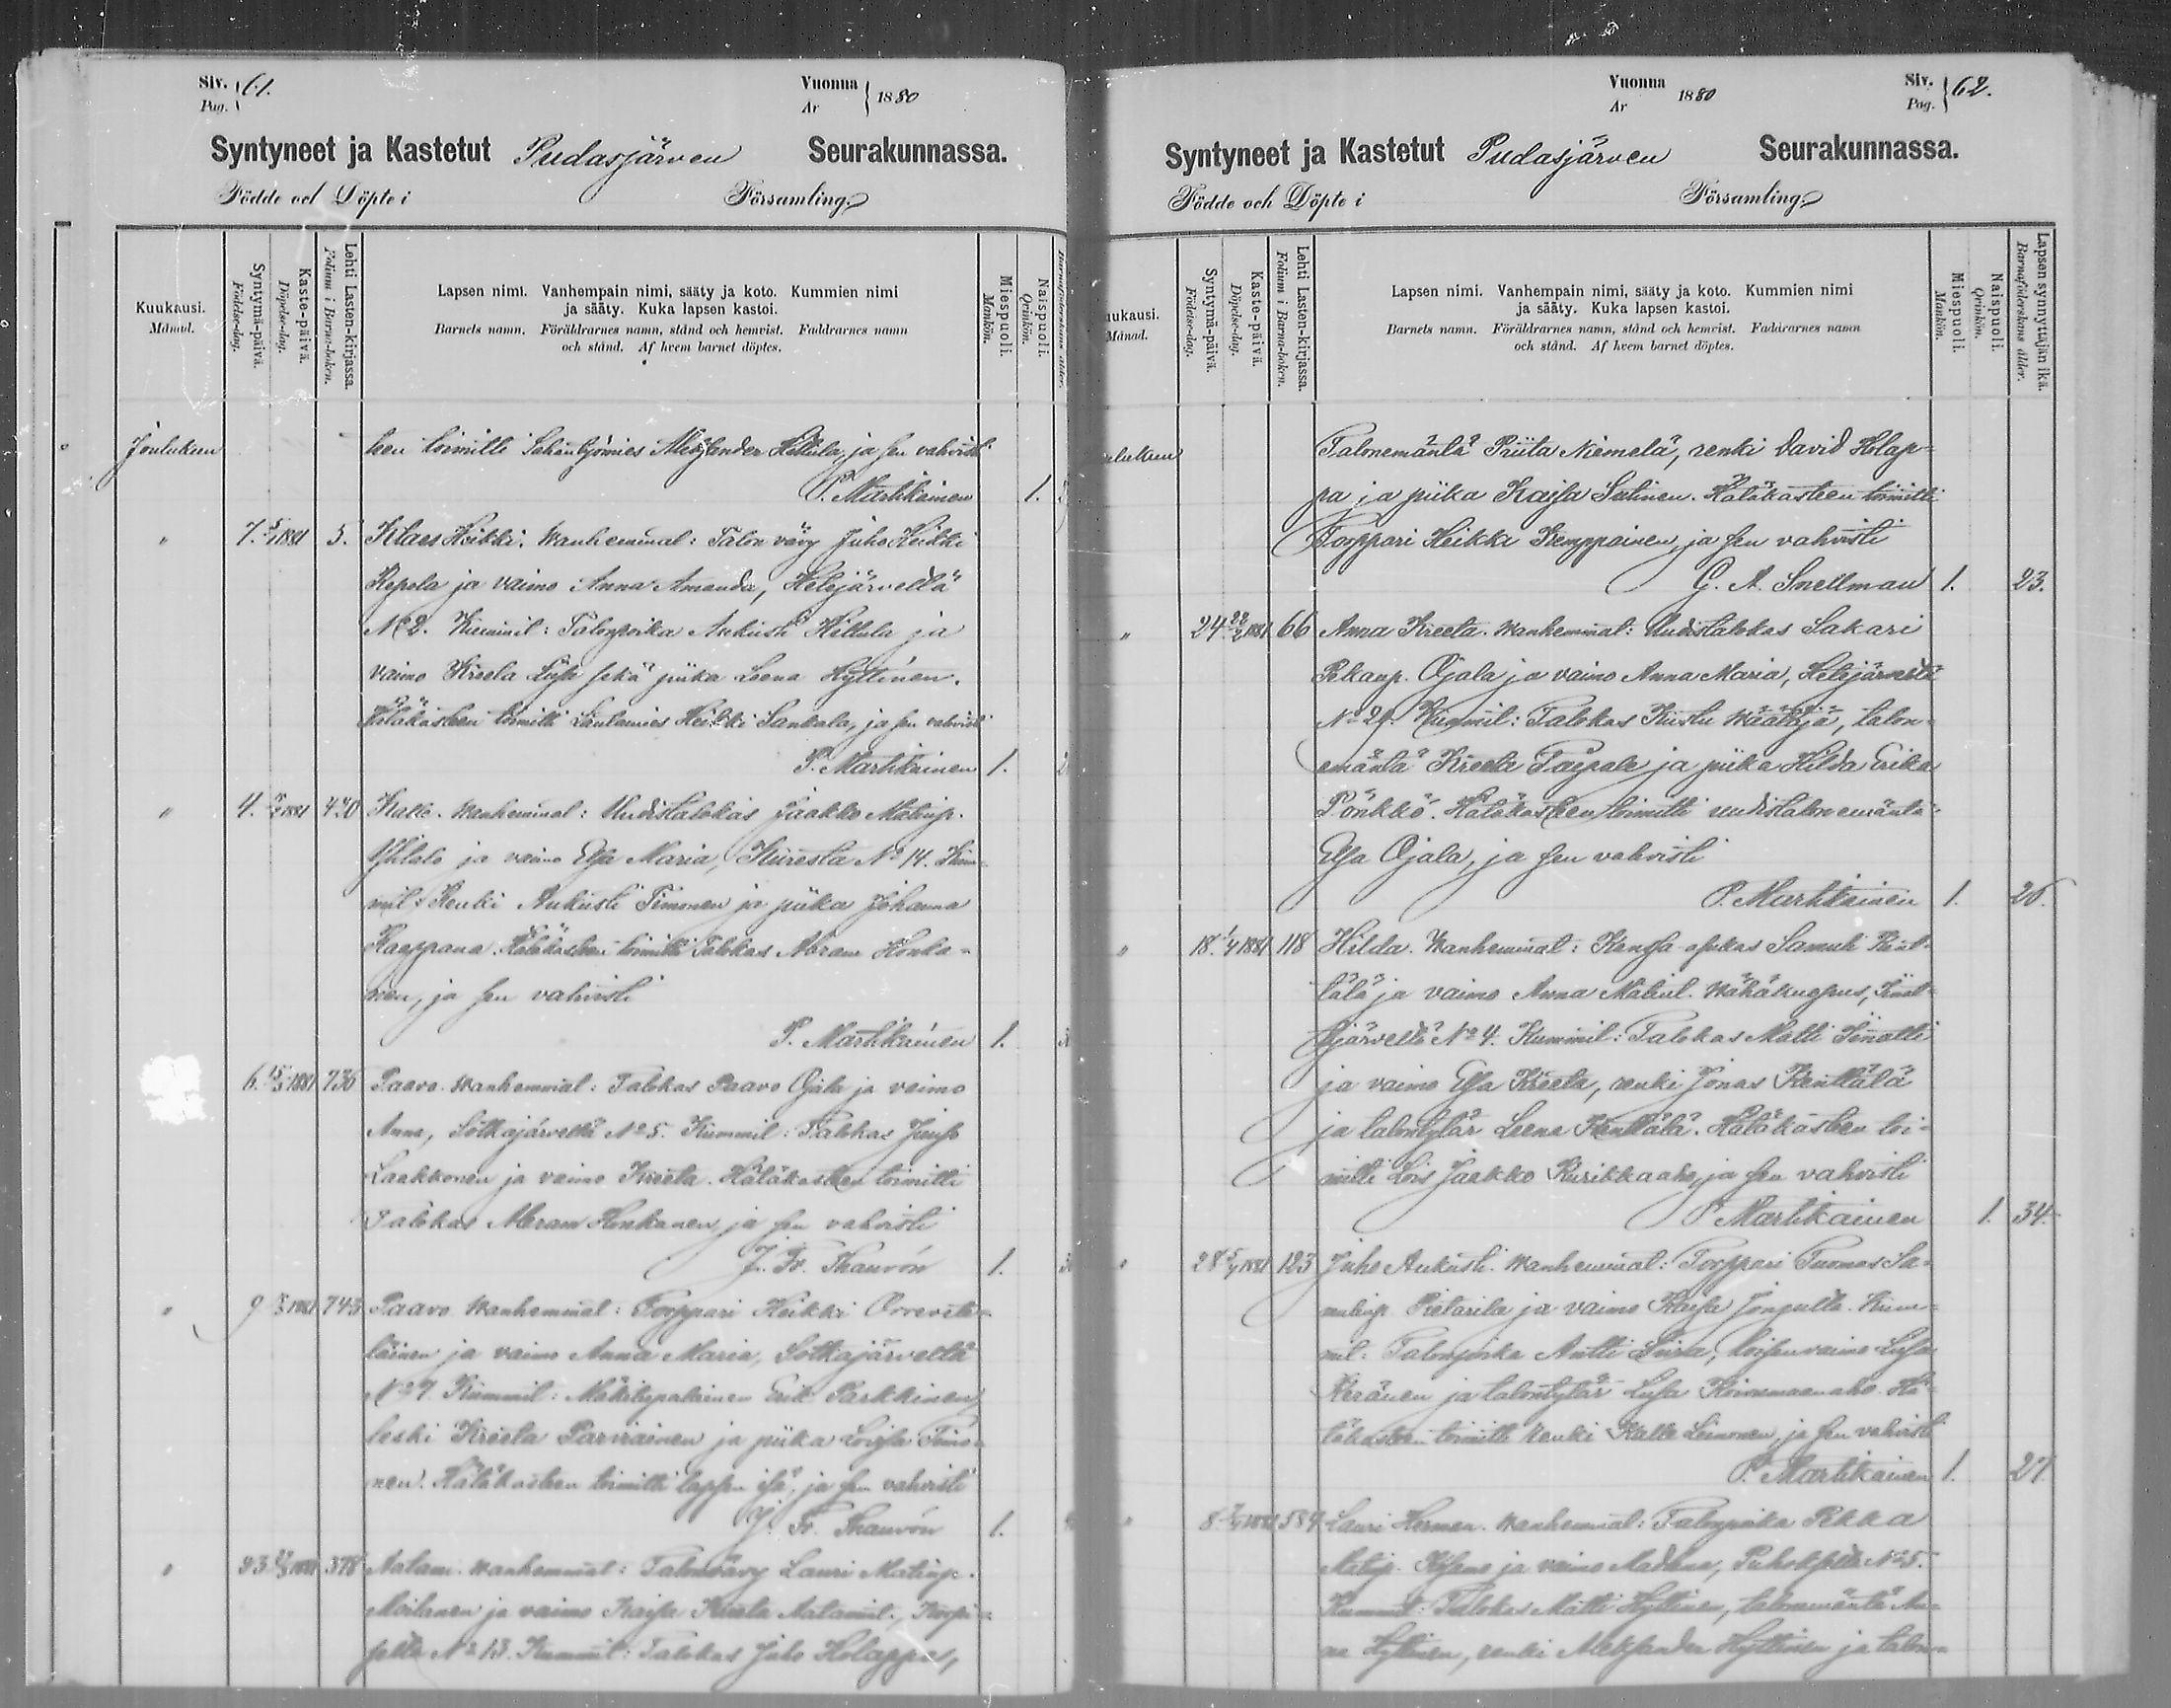 Siv. 61.
Pag.
Vuonna 1880
Ar
Syntyneet ja Kastetut Pudasjärven Seurakunnassa.
Födde och Döpte i Församling
Kuukausi.
Månad.
Syntymä-päivä.
Födelse-dag.
Kaste-päivä.
Döpelse-dag.
Lehti Lasten-kirjassa.
Folium i Barna-boken.
Lapsen nimi. Vanhempain nimi, sääty ja koto. Kummien nimi
ja sääty. Kuka lapsen kastoi.
Barnets namn. Föräldrarnes namn, stånd och hemvist. Faddrarnes namn
och stånd. Af hvem barnet döptes.
Miespuoli.
Mankön.
Naispuoli.
Qvinkön.
Barnaföderskans ålder.
Joulukuu ten toimitti Hiltula, ja sen vahvisti
P. Martikainen 1.
" 7. 1881 5. Klaes Heikki. Wanhemmat: Talon vävy Juho Heikki
Kepola ja vaimo Anna Amanda, Hetejärveltä
No 2. Kummit: Talonpoika Aukusti Hiltula ja
vaimo Kreeta Liisa sekä piika Leena Hyttinen.
Hätäkasteen toimitti Heikki Sankala, ja sen vahvisti
P. Martikainen 1.
" 4. 1881 420 Kalle. Wanhemmat: Uudistalokas Jaakko Matinp.
ja vaimo Elsa Maria, No 14. Kum-
mit: Renki Aukusti Timonen ja piika Johanna
Kaappana. Hätäkasteen toimitti Talokas Abram Honka-
nen, ja sen vahvisti
P. Martikainen 1.
6. 1881 736 Paavo. Wanhemmat: Talokas Paavo Ojala ja vaimo
Anna, Sotkajärveltä No 5. Kummit: Talokas Juuso
Laakkonen ja vaimo Kreeta. Hätäkasteen toimitti
Talokas Abram Honkanen, ja sen vahvisti
J. Fr. Thauvón 1.
" 9 1881 743 Paavo. Wanhemmat: Torppari Heikki
läinen ja vaimo Anna Maria, Sotkajärveltä
No 7. Kummit: Mäkitupalainen Erik Parkkinen,
leski Kreeta Parviainen ja piika Loisa Timo-
nen. Hätäkasteen toimitti lapsen isä, ja sen vahvisti
J. Fr. Thauvón 1.
" 23 1881 378 Aatami. Wanhemmat: Talonvävy Lauri Matinp.
Moilanen ja vaimo Kaisa Kreeta Aatamit.,
No 13. Kummit: Talokas Juho Holappa,
Vuonna 1880
Ar
Siv. 62.
Pag.
Syntyneet ja Kastetut Pudasjärven Seurakunnassa.
Födde och Döpte i Församling
ukausi.
Månad.
Syntymä-päivä.
Födelse-dag.
Kaste-päivä.
Döpelse-dag.
Lehti Lasten-kirjassa.
Folium i Barna-boken.
Lapsen nimi. Vanhempain nimi, sääty ja koto. Kummien nimi
ja sääty. Kuka lapsen kastoi.
Barnets namn. Föräldrarnes namn, stånd och hemvist. Faddrarnes namn
och stånd. Af hvem barnet döptes.
Miespuoli.
Mankön.
Naispuoli.
Qvinkön.
Lapsen synnyttäjän ikä.
Barnaföderskans ålder.
lukuu Talonemäntä Priita Niemelä, renki David Holap-
pa ja piika Kaisa Sutinen. Hätäkasteen toimitti
Torppari Heikki Kemppainen, ja sen vahvisti
G. A. Snellman 1. 23.
" 24 1881 66 Anna Kreeta. Wanhemmat: Uudistalokas Sakari
Pekanp. Ojala ja vaimo Anna Maria, Hetejärveltä
No 29. Kummit: Talokas Kustu Määttä, talon-
emäntä Kreeta Törmälä ja piika Hilda Erika
Pönkkö. Hätäkasteen toimitti uudistalon emäntä
Elsa Ojala, ja sen vahvisti
P. Martikainen 1. 26.
" 18. 1881 118 Hilda. Wanhemmat: Samuli Kent-
tälä ja vaimo Anna Matint. Iinat-
tijärveltä No 4. Kummit: Talokas Matti Iinatti
ja vaimo Elsa Kreeta, renki Jonas Kenttälä
ja talontytär Leena Kenttälä. Hätäkasteen toi-
mitti Lois Jaakko Kurikkaaho, ja sen vahvisti
P. Martikainen 1. 34.
" 28 1881 123 Juho Aukusti. Wanhemmat: Torppari Tuomas Sa-
mulinp. Pietarila ja vaimo Kaisa Jongulta. Kum-
mit: Talonpoika Antti Siira, loisen vaimo Liisa
Keränen ja talontytär Liisa Hä-
täkasteen toimitti renki Kalle Leinonen, ja sen vahvisti
P. Martikainen 1. 27.
" 8 1881 584 Lauri Herman. Wanhemmat: Talonpoika Pekka
Matinp. ja vaimo Madlena, No 5.
Kummit: Talokas Matti Hyttinen, talonemäntä An-
na Hyttinen, renki Aleksander Hyttinen ja talon-